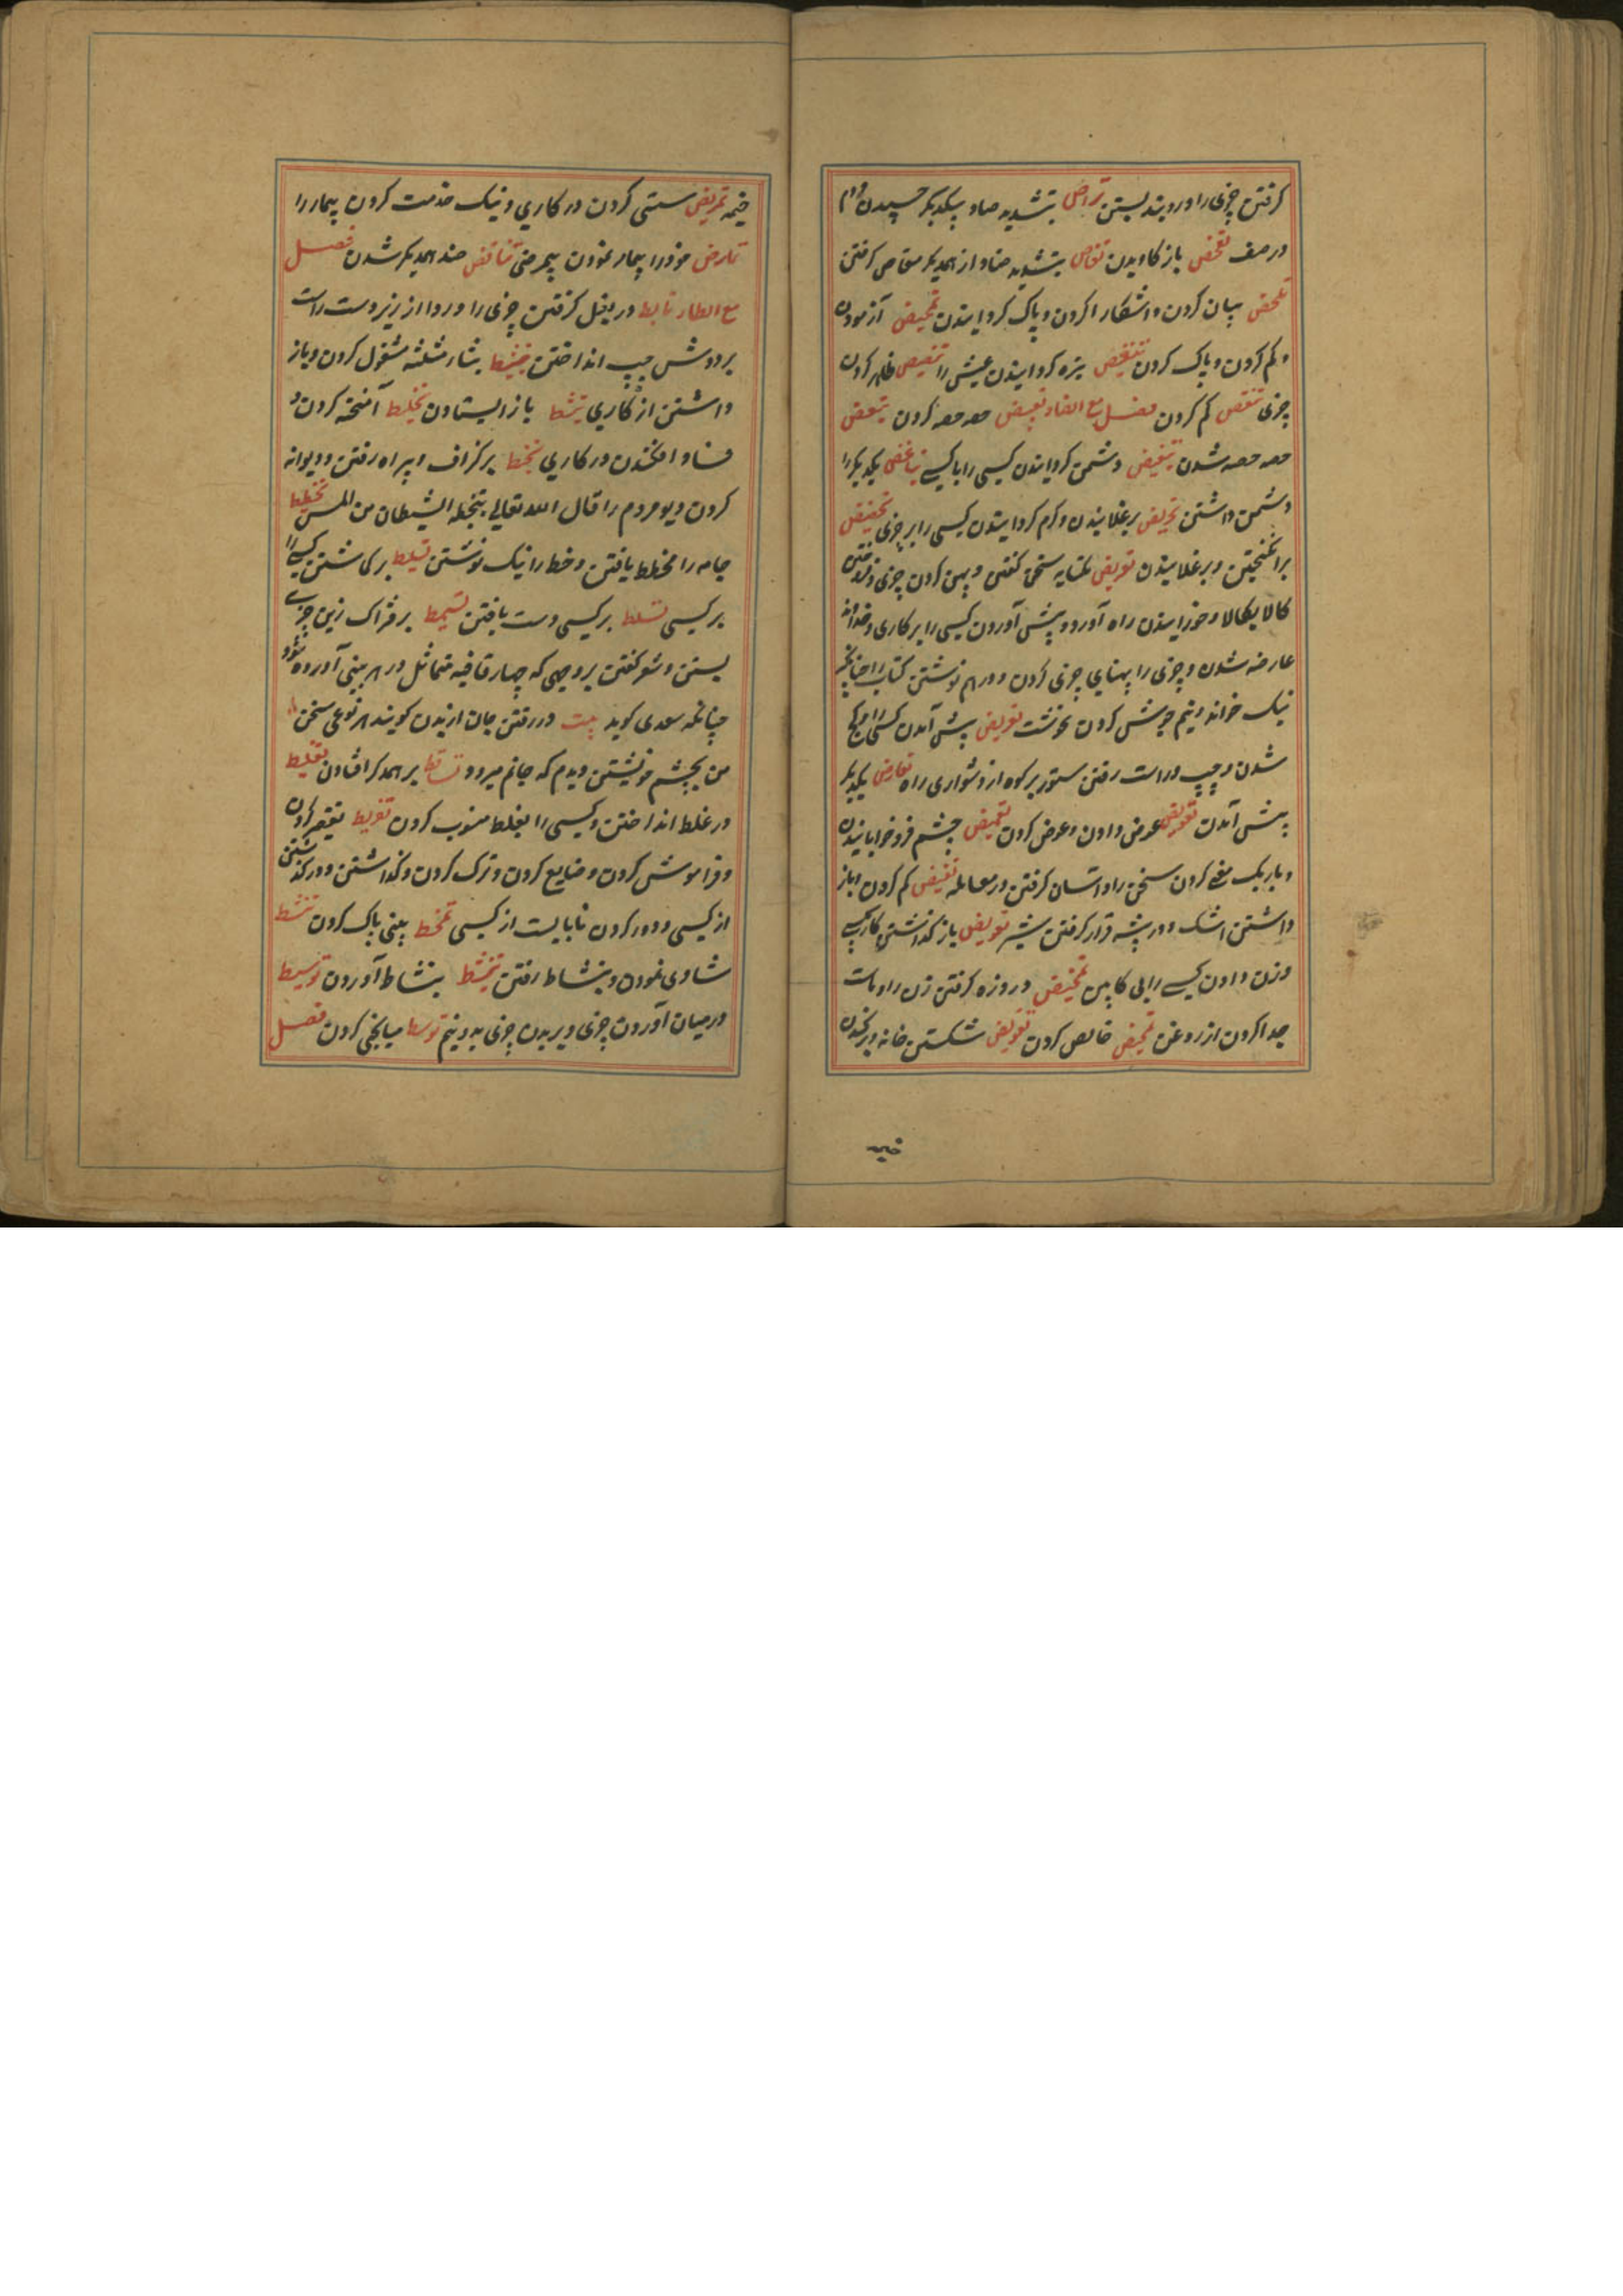 گرفتن چیزی را و در بند بستن تراص بتشدید صاد بیکدیگر چسپیدن مردم
در صف تفحص باز کاویدن تقاص بتشدید صاد از همدیگر مقاص گرفتن
تلخص بیان کردن و اشکارا کردن و پاک گردانیدن تمحیص آزمودن
و کم کردن و پاک کردن تنغیص تیره گردانیدن عیش را تنصیص ظاهر کردن
چیزی تنقص کم کردن فصل مع الضاد تبعیض حصه حصه کردن تبعض
حصه حصه شدن تبغیض دشمن گردانیدن کسی را با کسے تباغض یکدیگر را
دشمن داشتن تحریض برغلانیدن و گرم گردانیدن کسی را بر چیزی تحضیض
برانگیختن و برغلانیدن تعریض بکنایه سخن گفتن و پهن کردن چیزی و فروختن
کالا بکالا و خورانیدن راه آورد و پیش آوردن کسی را بر کاری و خداوند
عارضه شدن و چیزی را پهنای چیزی کردن و درهم نوشتن کتاب را چنانچه
نیک خوانده و نیم جوش کردن گوشت تعریض پیش آمدن کسی را و کج
شدن و چپ و راست رفتن ستور بر کوه از دشواری راه تعارض یکدیگر
پیش آمدن تعویض عوض دادن و عوض کردن تغمیض چشم فرو خوابانیدن
و باریک معنے کردن سخن را و اسان گرفتن در معامله تغییض کم کردن و باز
داشتن اشک و در بیشه قرار گرفتن شیر تفویض باز گذاشتن کار بکسے
و زن دادن کسے را بی کابین تمخیض دروزه گرفتن زن را و ماست
جدا کردن از روغن تمحیض خالص کردن تقویض شکستن خانه و برکندن
خیمه
خیمه تمریض سستی کردن در کاری و نیک خدمت کردن بیمار را
تمارض خود را بیمار نمودن بیمرضی تناقض ضد همدیگر شدن فصل
مع الطاء تابط در بغل گرفتن چیزی را و ردا از زیر دست راست
بر دوش چپ انداختن تثبیط بثاء مثلثه مشغول کردن و باز
داشتن از کاری تثبط باز ایستادن تخلیط آمیخته کردن و
فساد افکندن در کاری تخبط بر گزاف و بیراه رفتن و دیوانه
کردن دیو مردم را قال الله تعالی یتخبطه الشیطان من المس تخطیط
جامه را مخطط یافتن و خط را نیک نوشتن تسلیط بر گماشتن کسے را
بر کسی تسلط بر کسی دست یافتن تسمیط بر فتراک زین چیزے
بستن و شعر گفتن بر وجهی که چهار قافیه متماثل در هر بیتی آورده شود
چنانکه سعدی گوید بیت در رفتن جان از بدن گویند هر نوعی سخن
من بچشم خویشتن دیدم که جانم میرود تساقط بر همدگر افتادن تغلیط
در غلط انداختن و کسی را بغلط منسوب کردن تفریط تقصیر کردن
و فراموش کردن و ضایع کردن و ترک کردن و گذاشتن و در گذشتن
از کسی و دور کردن نابایست از کسی تمخط بینی پاک کردن تنشط
شادی نمودن و بنشاط رفتن تنشیط بنشاط آوردن توسیط
در میان آوردن چیزی و بریدن چیزی بدونیم توسط میانجی کردن فصل